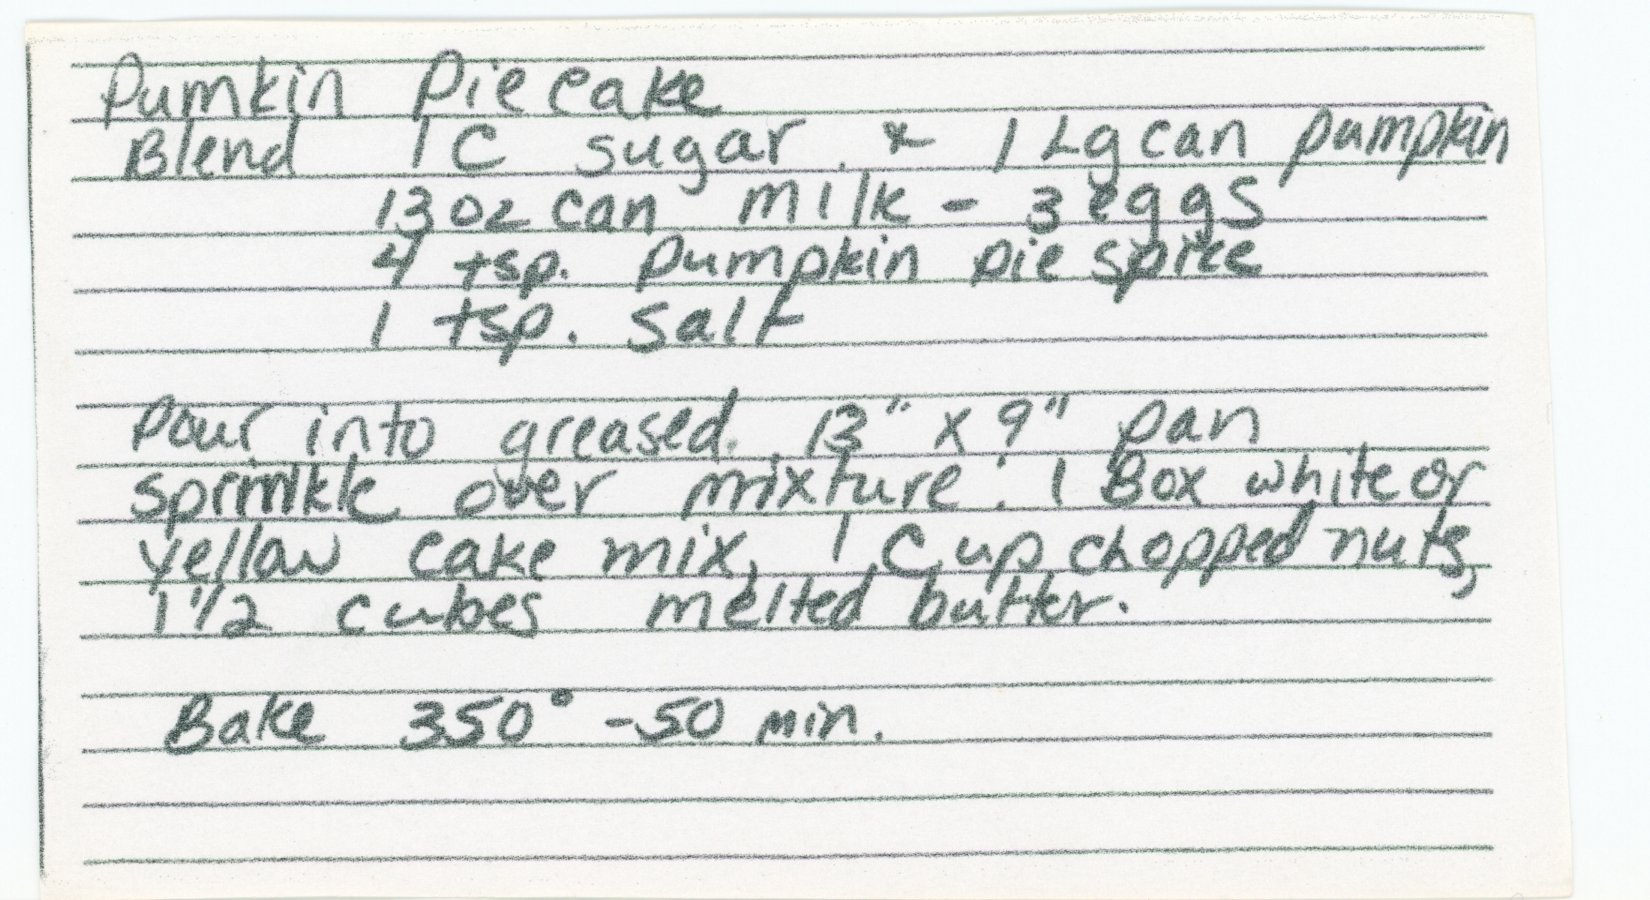 Pumkin Pie Cake
Blend 1 C sugar & 1 Lg can pumpkin
13 oz can milk - 3 eggs
4 tsp. pumpkin pie spice
1 tsp. salt
Pour into greased 13" x 9" pan
sprinkle over mixture: 1 Box white or
yellow cake mix, 1 Cup chopped nuts,
1 1/2 cubes melted butter.
Bake 350° - 50 min.